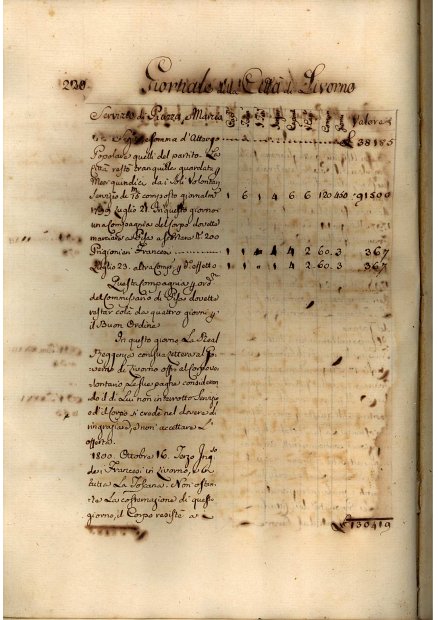 220 Giornale della Città di Livorno
Servizio di Piazza, e Marcia Valore
somma d'Attergo £ 38185
Popolare quelli del partito. La
Città restò tranquilla guardata
Mesi quindici dai soli Volontarj
Servizio di composto giornalm. 1 6 1 4 6 6 120 450 91800
1799 Luglio 21. In questo giorno
una Compagnia del Corpo dovette
marciare a Pisa a N.° 200
Prigionieri Francesi 1 1 1 4 2 60 3 367
Luglio 23. altra Comp. p. effetto 1 1 1 4 2 60 3 367
Questa Compagnia p. ord.
del Commissario di Pisa dovette
restar colà da quattro giorni p.
il Buon Ordine
In questo giorno La Real
Reggenza con sua Lettera al Go-
verno di Livorno offrì al Corpo Vo-
lontario Le sue paghe consideran-
do il di Lui non interrotto Servizio
ed il Corpo si credè nel dovere di
ringraziare, e non accettare L'
offerta.
1800. Ottobre 16. Terzo Ing.
dei Francesi in Livorno, e in
tutta La Toscana. Non ostan-
te La costernazione di quel
giorno, il Corpo resistè a £ 130419